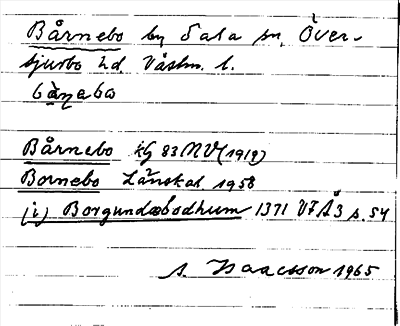 Bårnebo by Sala sn, Över-
tjurbo hd. Västm. l.
bà̀ŋebo
Bårnebo kg 83 NV (1912)
Bornebo Länskal 1958
(i) Borgundabodhum 1371 VFÅ 3 s. 54
A. Isaacsson 1965